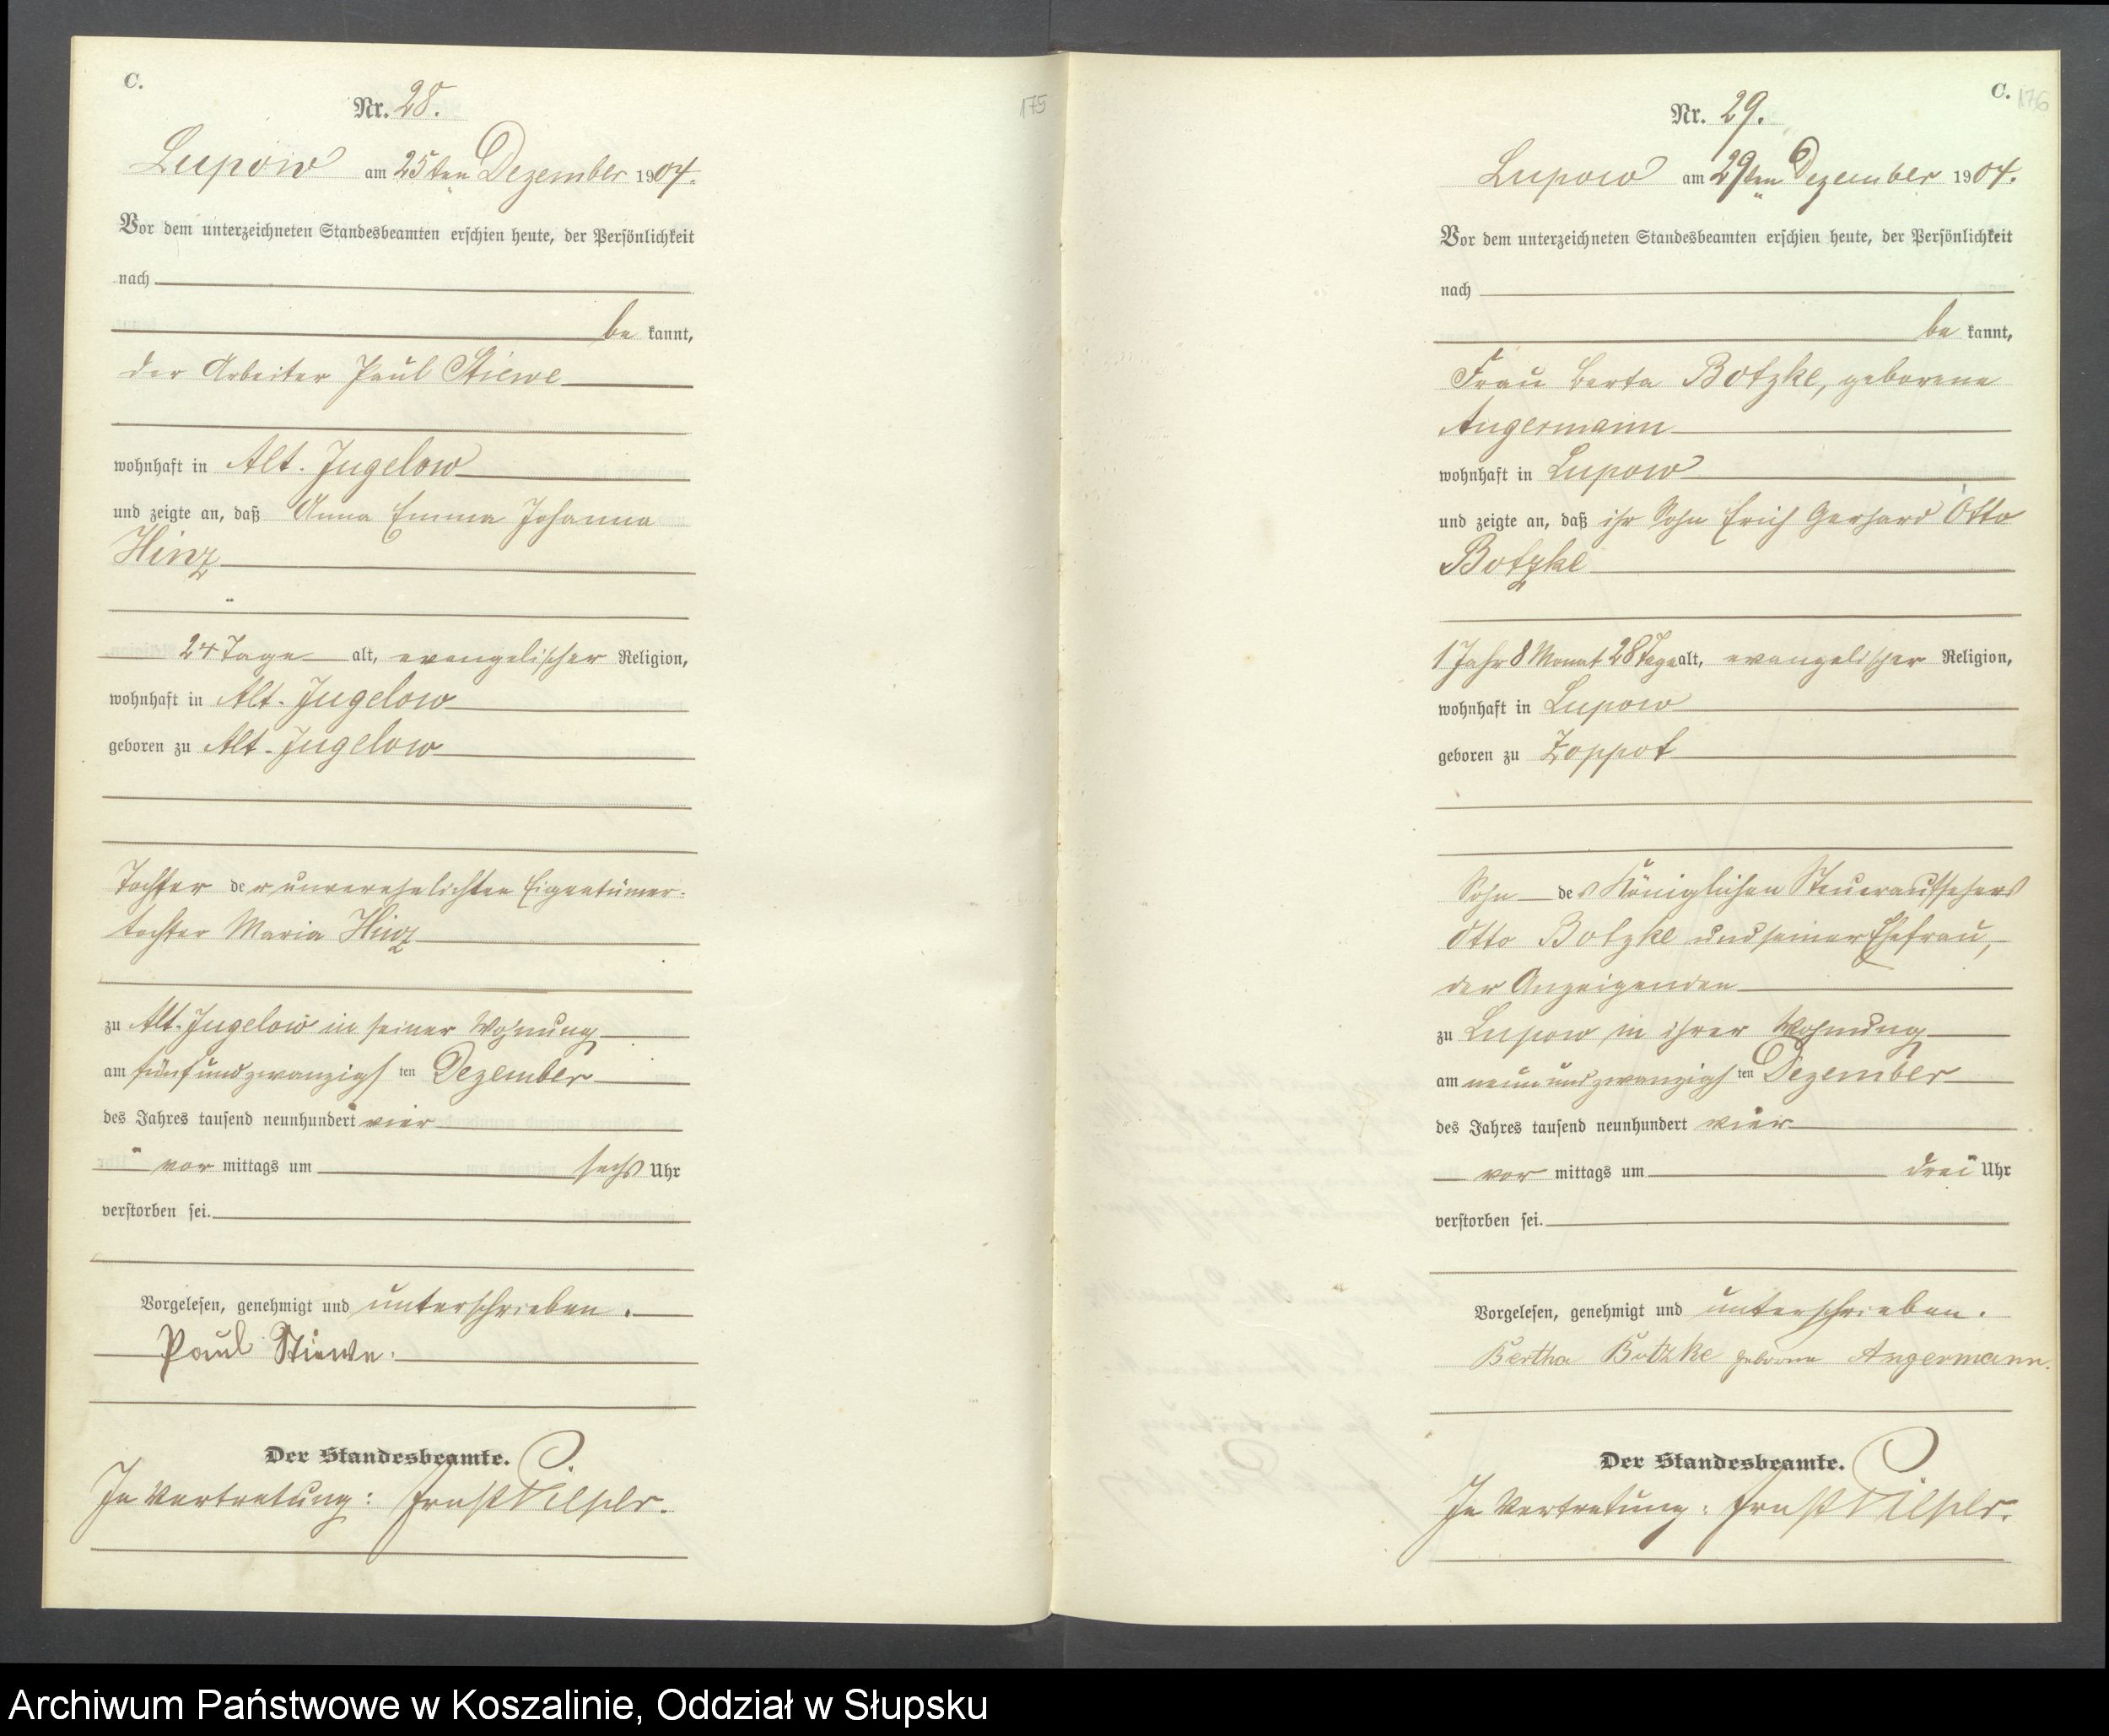 C.
175
Nr. 28.
Lupow am 25ten Dezember 1904.
Vor dem unterzeichneten Standesbeamten erschien heute, der Persönlichkeit
nach
be kannt,
der Arbeiter Paul Stiewe
wohnhaft in Alt. Jugelow
und zeigte an, daß Anna Emma Johanna
Hinz
24 Tage alt, evangelischer Religion,
wohnhaft in Alt. Jugelow
geboren zu Alt. Jugelow
Tochter der unverehelichten Eigentümer-
tochter Maria Hinz
zu Alt. Jugelow in seiner Wohnung
am fünfundzwanzigsten Dezember
des Jahres tausend neunhundert vier
vor mittags um sechs Uhr
verstorben sei.
Vorgelesen, genehmigt und unterschrieben.
Paul Stiewe.
Der Standesbeamte.
In Vertretung: Ernst
C.
176
Nr. 29.
Lupow am 29ten Dezember 1904.
Vor dem unterzeichneten Standesbeamten erschien heute, der Persönlichkeit
nach
be kannt,
Frau Berta Botzke, geborene
Angermann
wohnhaft in Lupow
und zeigte an, daß ihr Sohn Erich Gerhard Otto
Botzke
1 Jahr 8 Monat 28 Tage alt, evangelischer Religion,
wohnhaft in Lupow
geboren zu Zoppot
Sohn des Königlichen Steueraufsehers
Otto Botzke und seiner Ehefrau,
der Anzeigenden
zu Lupow in ihrer Wohnung
am neunundzwanzigsten Dezember
des Jahres tausend neunhundert vier
vor mittags um drei Uhr
verstorben sei.
Vorgelesen, genehmigt und unterschrieben.
Bertha Botzke geborne Angermann.
Der Standesbeamte.
In Vertretung: Ernst
Archiwum Państwowe w Koszalinie, Oddział w Słupsku